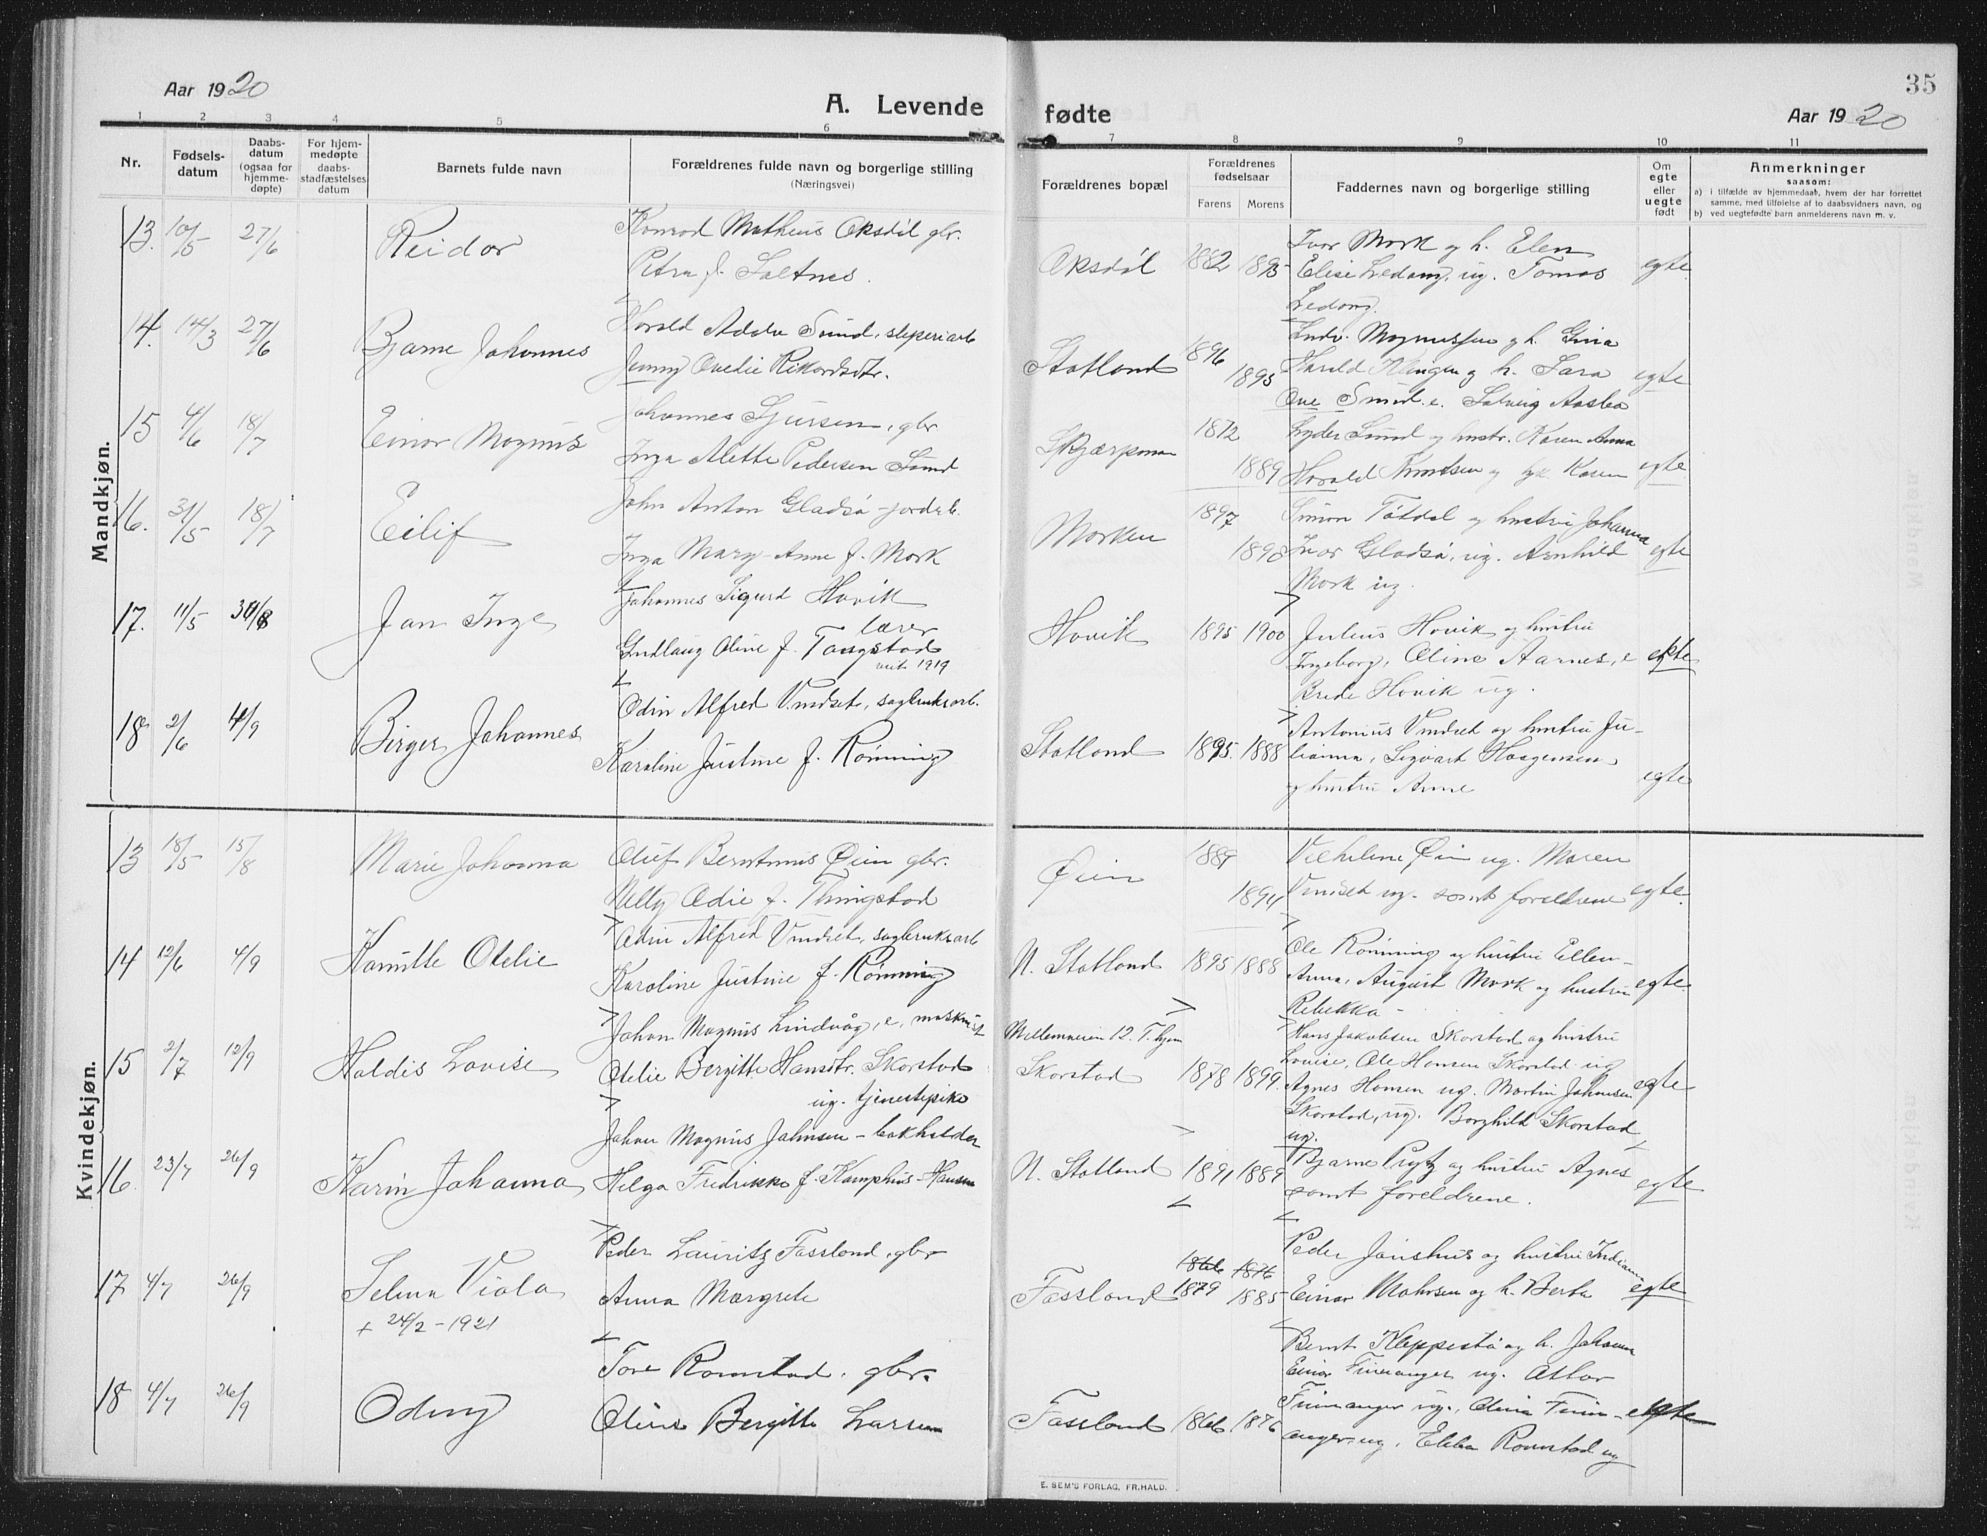 Aar 1920
A. Levende fødte
35
Aar 1920
1 2 3 4 5 6 7 8 9 10 11
Nr.
Fødsels-
datum
Daabs-
datum
(ogsaa for
hjemme-
døpte)
For hjem-
medøpte
daabs-
stadfæstelses
datum
Barnets fulde navn
Forældrenes fulde navn og borgerlige stilling
(Næringsvei)
Forældrenes bopæl
Forældrenes
fødselsaar
Farens Morens
Faddernes navn og borgerlige stilling
Om
egte
eller
uegte
født
Anmerkninger
saasom:
a) i tilfælde av hjemmedaab, hvem der har forrettet
samme, med tilføielse af to daabsvidners navn, og
b) ved uegtefødte barn anmelderens navn m. v.
Mandkjøn.
13. 10/5 27/6 Reidar
Konrad Matheus Oksdøl gbr.
Petra f. Saltnes.
Oksdøl 1882 1893
Ivar Mork og h. Elen
Elise Ledang, ug. Tomas
Ledang.
egte
14. 14/3 27/6 Bjarne Johannes
Harald Adolv Sund, sliperiarb
Jenny Ovedie Rikardsdtr.
Statland 1896 1895
Ludv. Magnussen og h. Gina
Harald Klingen og h. Sara
Ove Sund e. Solveig Aasbø
egte
15 4/6 18/7 Einar Magnus
Johannes Sjursen, gbr
Inga Alette Pedersen Sund
Skjærpman 1872 1889
Lyder Sund og hustr. Karen Anna
Harald Knutsen og Karen
egte
16. 31/5 18/7 Eilif
John Anton Gladsø - jordb.
Inga Mary Anne f. Mork
Morken 1897 1898
Simon Tøtdal og hustru Johanna
Ivar Gladsø, ug. Arnhild
Mork ug.
egte
17. 11/5 Jan Inge
Johannes Sigurd Hovik
lærer
Gudlaug Oline f. Tangstad
1919
Hovik 1895 1900
Julius Hovik og hustru
Ingeborg, Oline Aarnes, e
Brede Hovik ug.
ekte
18 2/6 4/9 Birger Johannes
Odin Alfred Vindset, sagbruksarb.
Karoline Justine f. Rønning
Statland 1895. 1888
Antonius Vindset og hustru Ju-
lianna, Sigvart Haagensen
og hustru Anne
egte
Kvindekjøn.
13 18/5 15/8 Marie Johanna
Oluf Berntinus Øien gbr.
Nelly Odie f. Thingstad
Øien 1889 1894
Vilhelmine Øien ug. Maren
Vindset ug. samt forældrene
egte.
14 12/6 4/9 Kamille Otelie
Odin Alfred Vindset, sagbruksarb
Karoline Justine f. Rønning
N. Statland 1895 1888
Ole Rønning og hustru Ellen-
Anna, August Mork og hustru
Rebekka -
egte.
15 2/7 12/9 Haldis Lovise
Johan Magnus Lindvåg, e, maskinist
Otelie Bergitte Hansdtr. Skorstad
ug. tjenestepike
Mellemveien 12. T.hjem
Skorstad 1878 1899
Hans Jakobsen Skorstad og hustru
Lovise, Ole Hansen Skorstad ug
Agnes Hansen ug. Martin Johansen
Skorstad, ug. Borghild Skorstad
ug.
egte
16 23/7 26/9 Karin Johanna
Johan Magnus Johnsen - bokholder
Helga Fredrikke f. Kamphus-Hansen
N. Statland 1891 1889
Bjarne Prytz og hustru Agnes
samt foreldrene.
egte
17 4/7 26/9 Selma Viola
+ 24/2 - 1921
Peder Lauritz Fassland, gbr
Anna Margrete
Fassland 1866 1876
1879 1885
Peder Janshus og hustru Indiana
Einar Mahrsen og h. Berta
egte
18 4/7 26/9 Odny
Tore Romstad, gbr.
Oline Bergitte Larsen
Fassland 1866 1876
Bernt Kleppestø og h. Johanna
Einar Finnanger ug. Ottar
Finnanger ug., Olina Finn-
anger, ug, Ebba Romstad ug
egte
E. SEM'S FORLAG, FR.HALD.